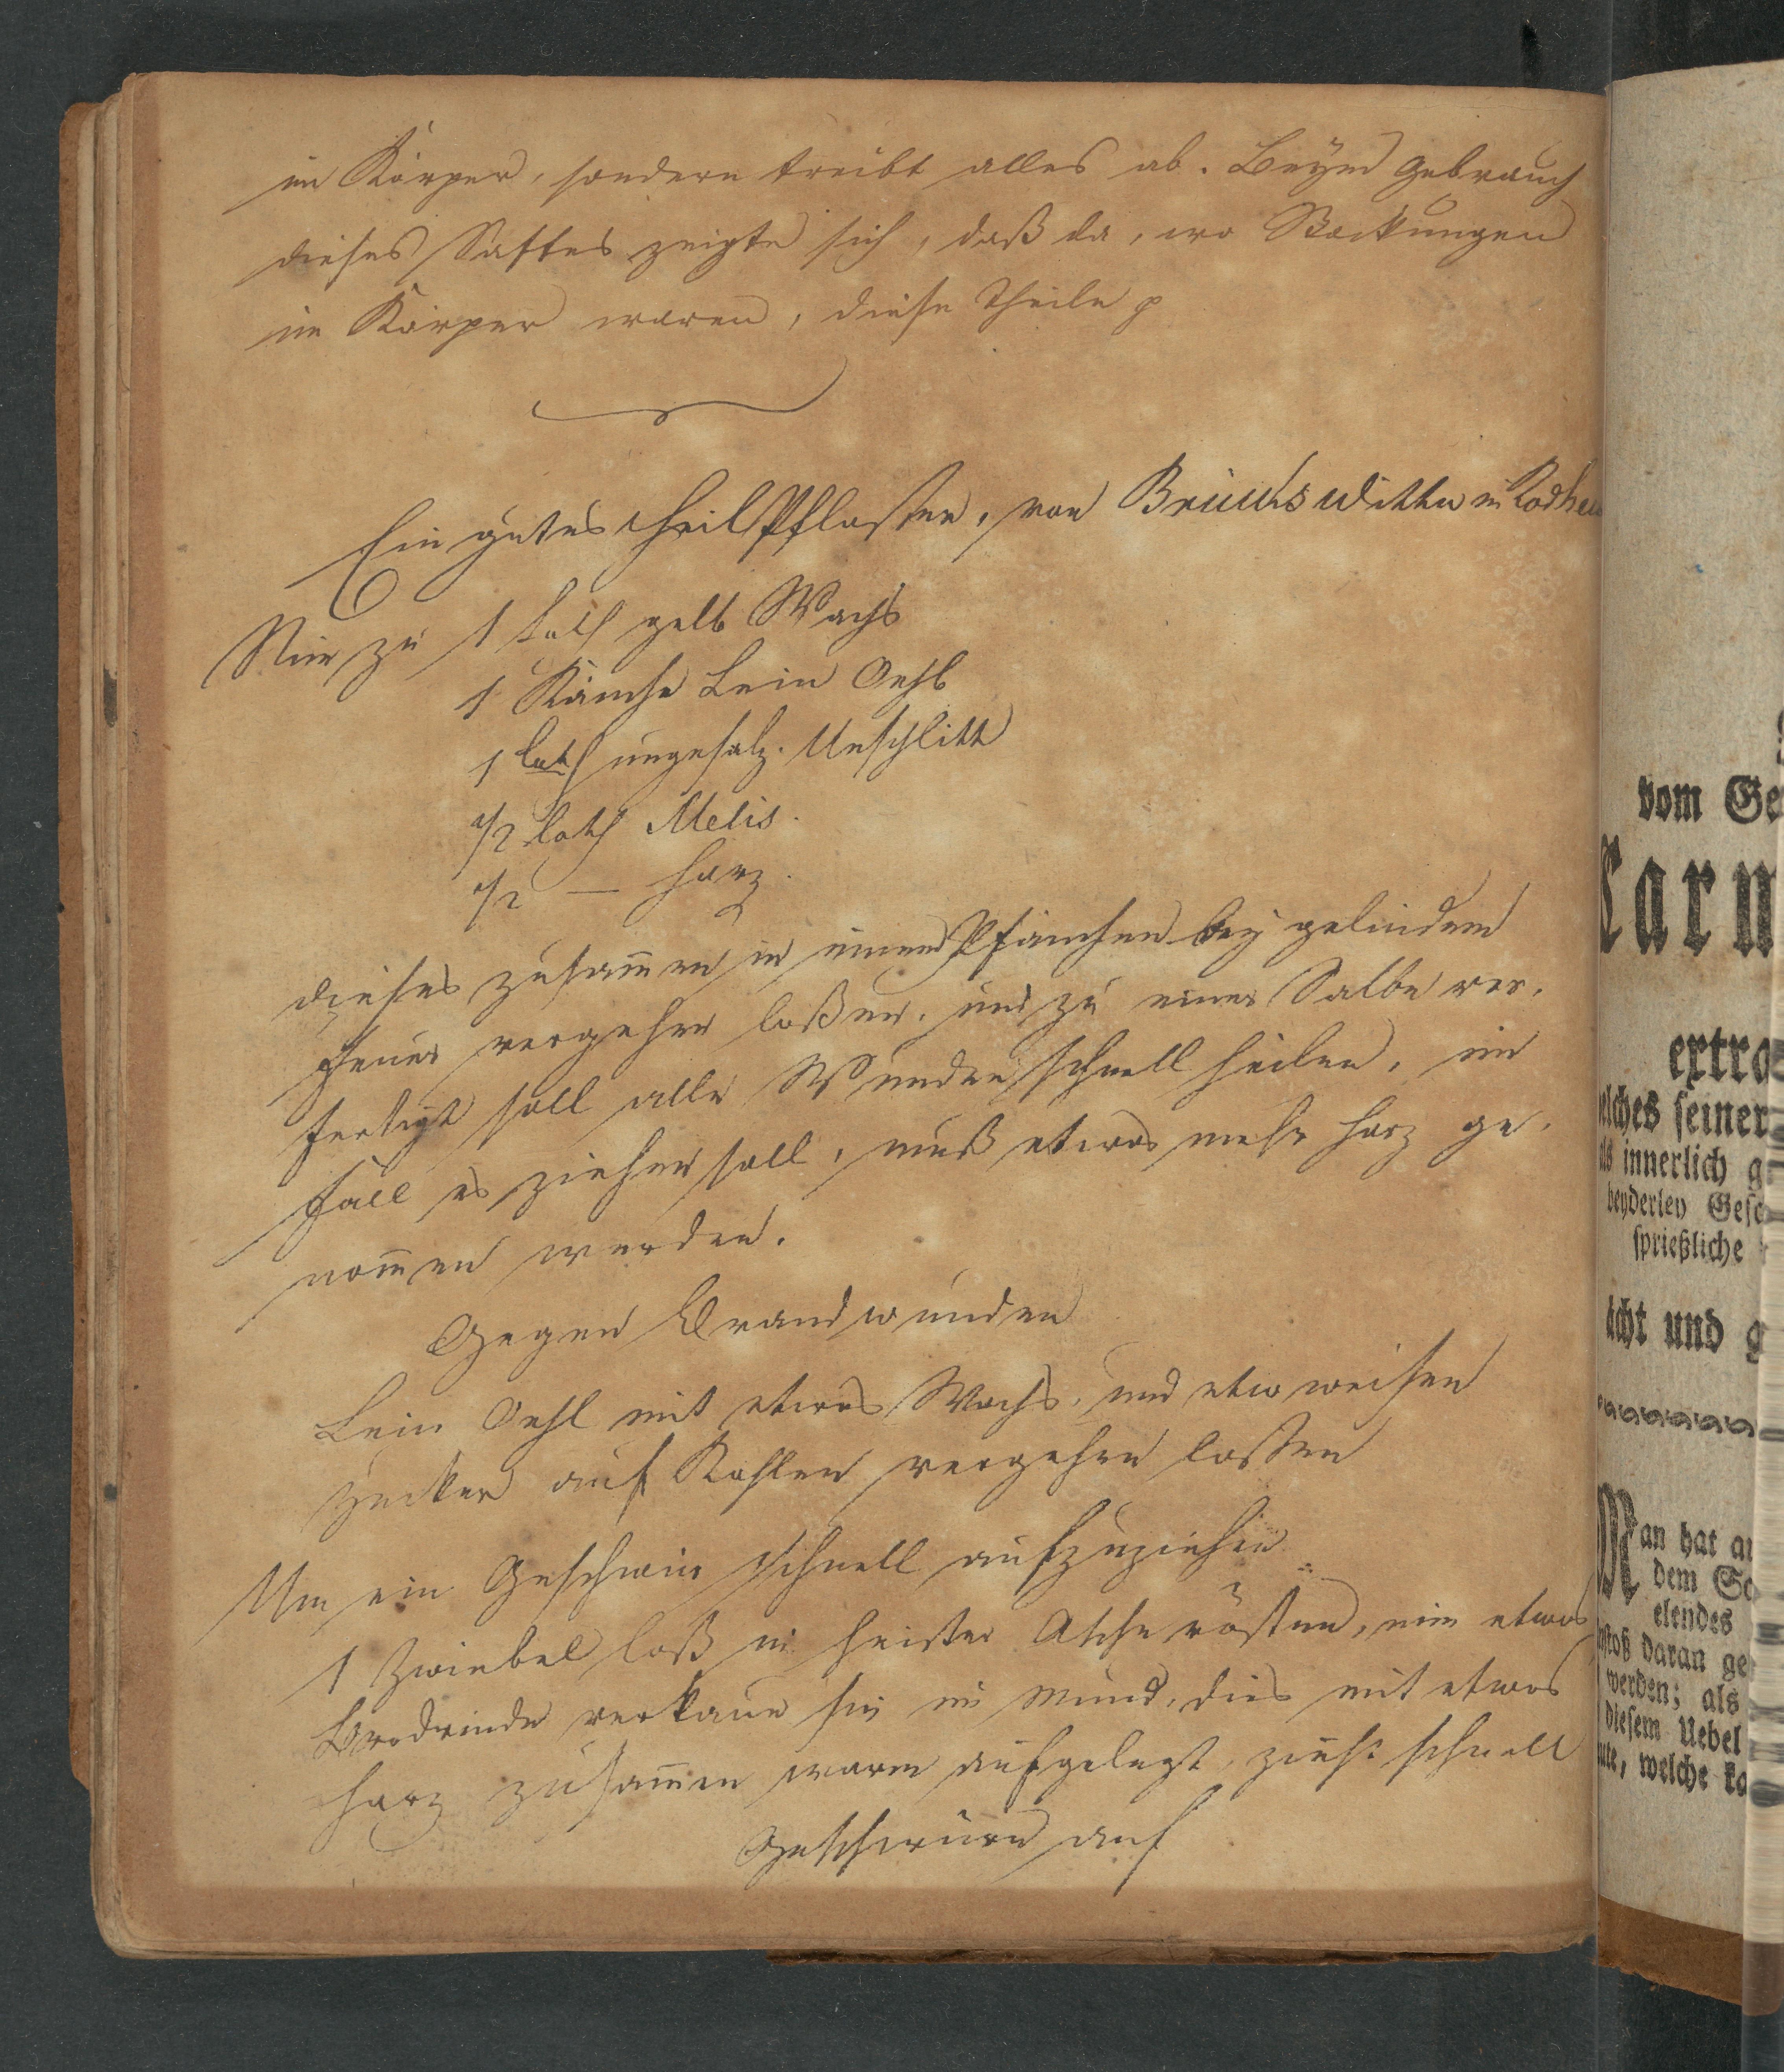 im Körper, sondern treibt alles ab. Beym Gebrauch
dieses Saftes zeigte sich, daß da, wo Stockungen
im Körper waren, diese Theile p
Ein gutes Heil Pflaster, von Wittw in
Nim zu 1 Loth gelb Wachs
1 Känche Lein Oehl
1 Loth ungesalz. Unschlitt
1/2 Loth Melis.
1/2 — Harz.
dieses zusam̄en in einem Pfänchen bey gelindem
Feuer vergehen laßen, und zu einer Salbe ver,
fertigt soll alle Wunden schnell heilen, im
Fall es ziehen soll, muß etwas mehr Harz ge,
nom̄en werden.
Gegen Brandwunden
Lein Oehl mit etwas Wachs, und etw weisen
Zucker auf Kohlen vergehen lassen
Um ein Geschwür schnell aufzuziehen
1 Zwiebel laß in heiser Asche rösten, nim etwas
Brodrinde verkaue sie im Mund, dies mit etwas
Harz zusam̄en warm aufgelegt, zieht schnell
Geschwüre auf
vom Ge
Carm
extra
elches seiner
als innerlich g
beyderley Gesc
sprießliche
ächt und g
Man hat a
dem Sc
elendes
stoß daran ge
werden; als
diesem Uebel
ute, welche ka